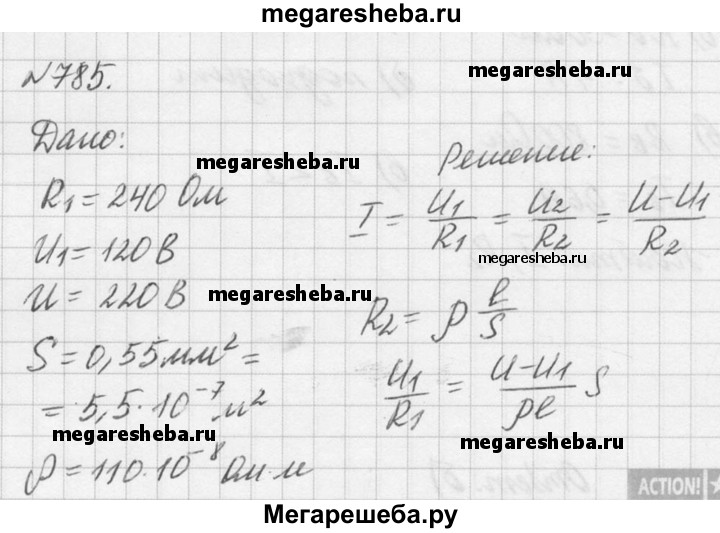 megaresheba.ru
№785.
megaresheba.ru
Дано:
megaresheba.ru
Решение:
R1 = 240 Ом
I = U1/R1 = U2/R2 = (U-U1)/R2
U1 = 120 В
megaresheba.ru
U = 220 В
megaresheba.ru
R2 = ρ l/S
S = 0,55 мм² =
U1/R1 = (U-U1)/ρl S
= 5,5·10⁻⁷ м²
megaresheba.ru
megaresheba.ru
ρ = 110·10⁻⁸ Ом·м
ACTION!
Мегарешеба.ру